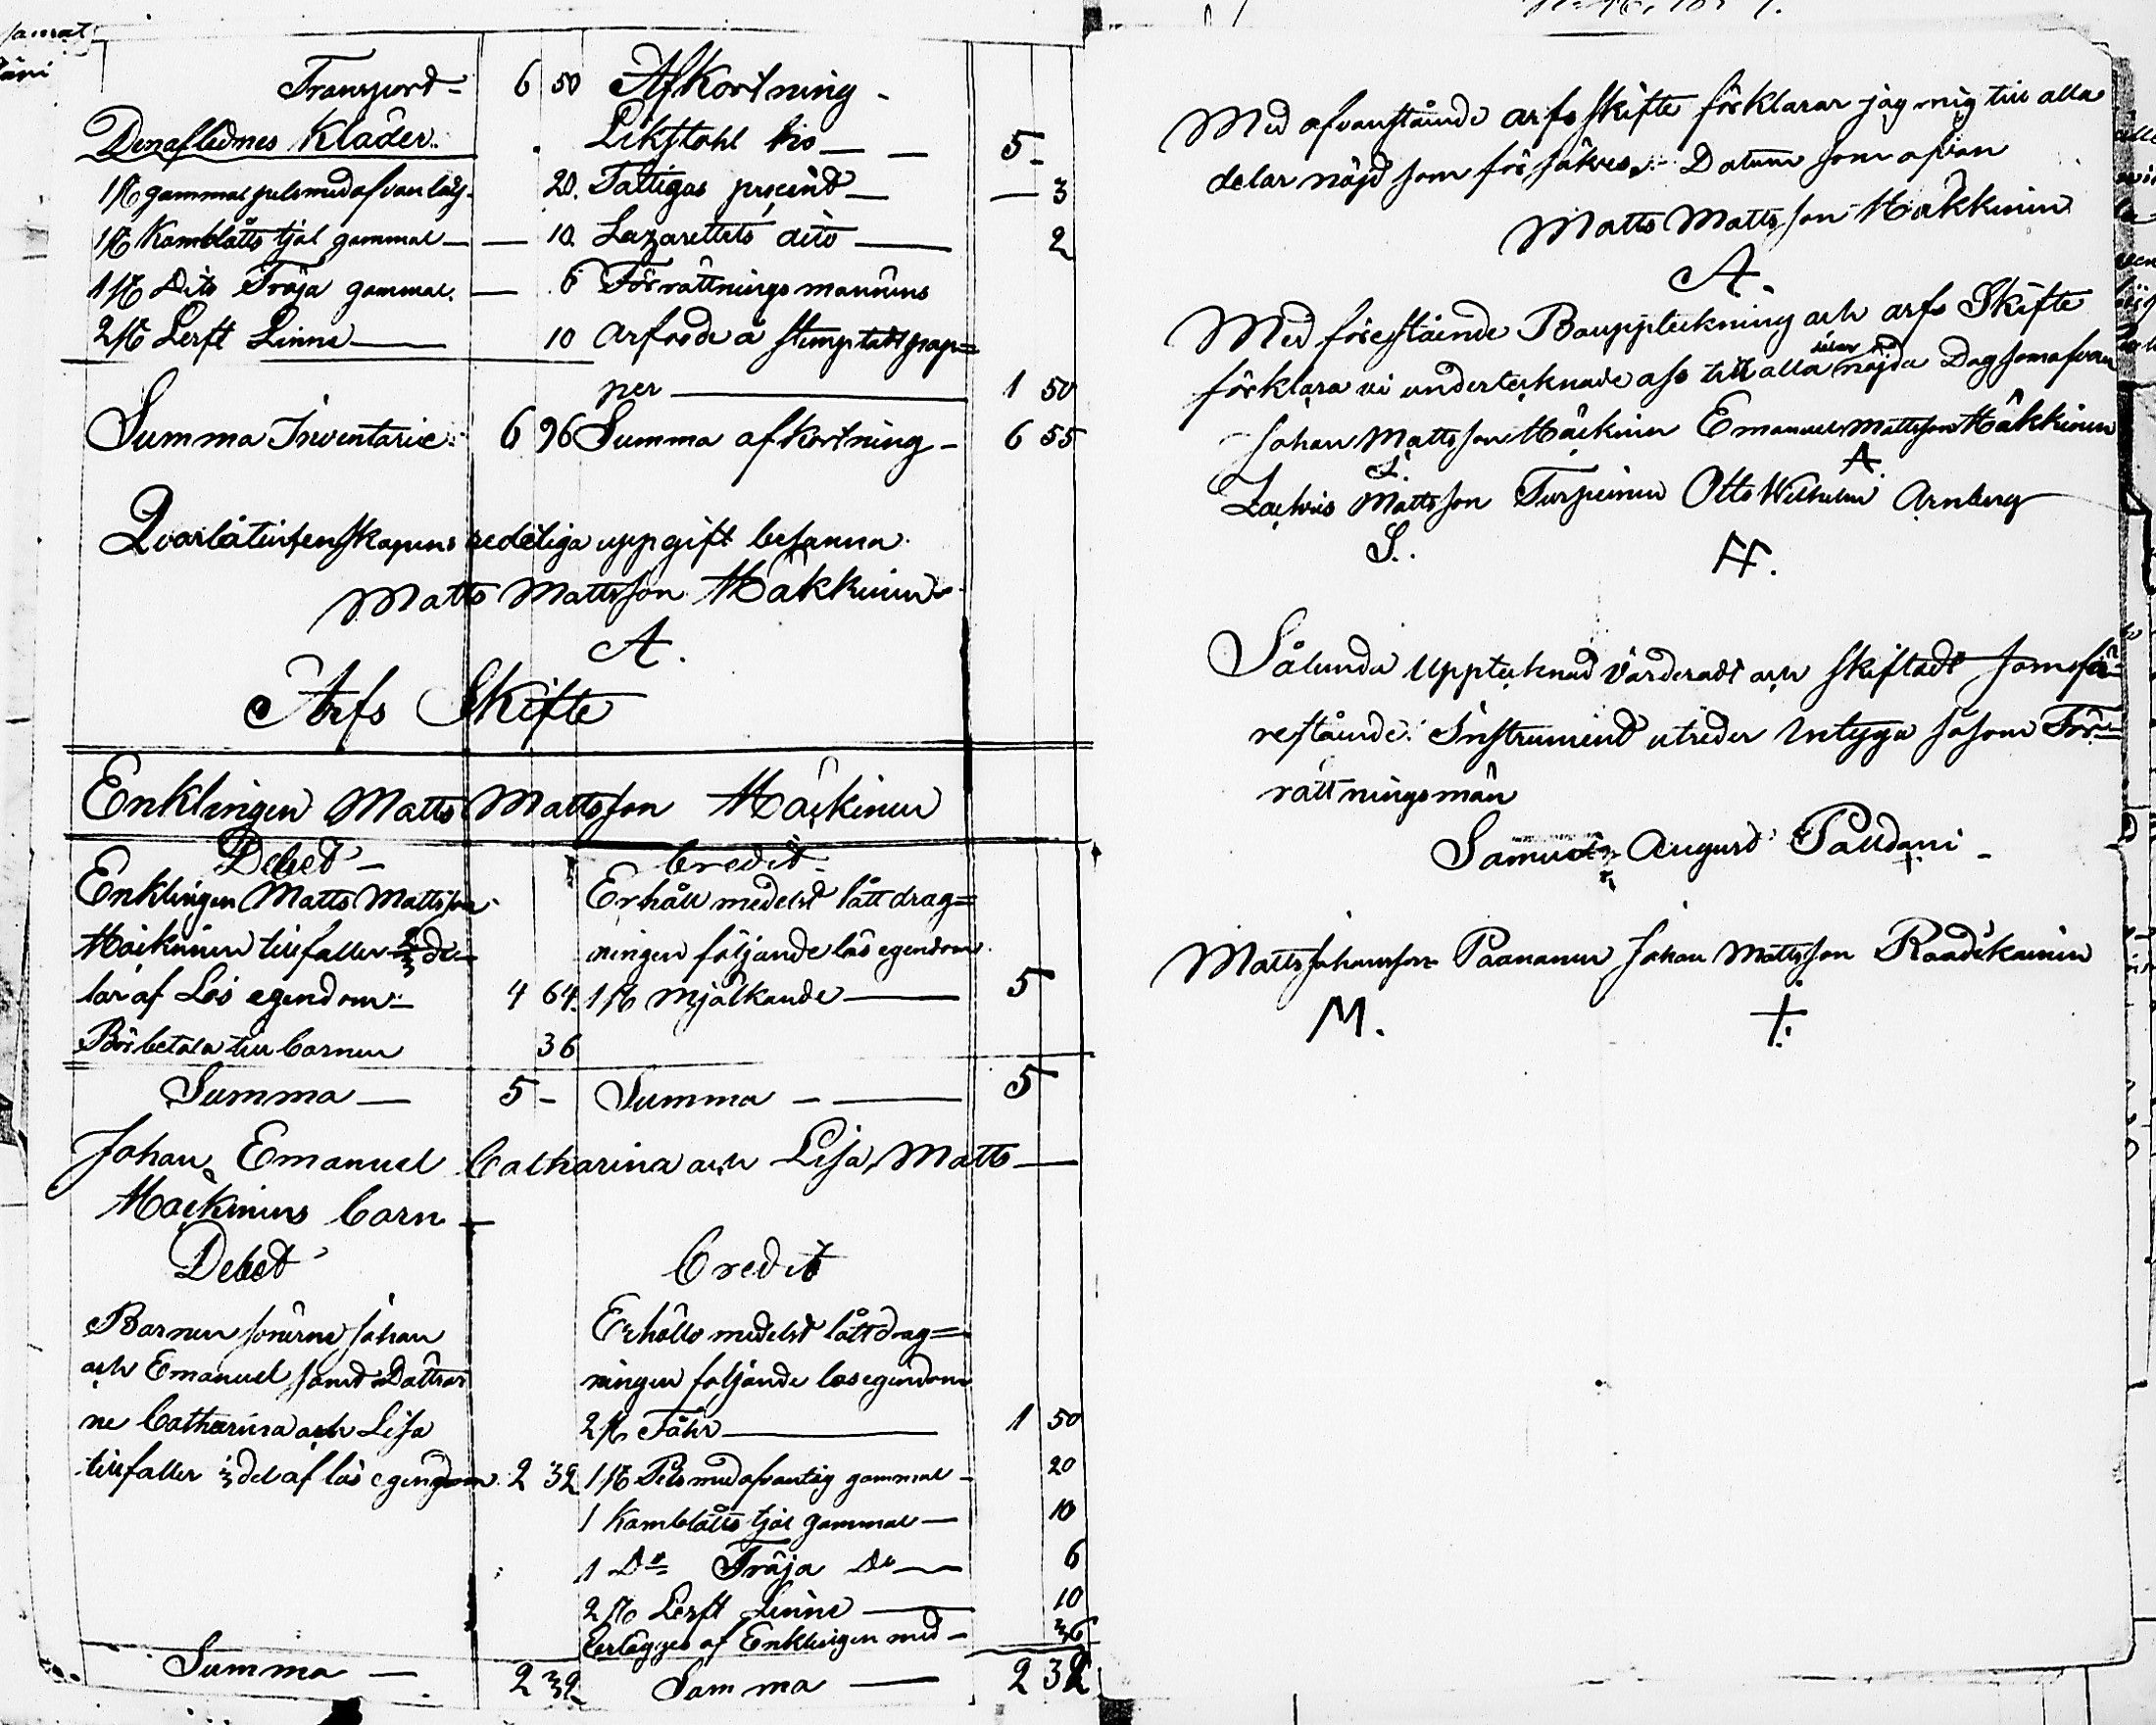 Transport 6 50 Afkortning
Den aflednes Kläder Likstohl kio 5 -
1 st gammal pels med afvanlag 20. Fattigas procent 3
1 st Kamblotts tjol gammal 10. Lazarettets dito 2
1 st Dito Tröja gammal 6 Förrättningsmännens
2 st Lerft Linne 10 arfvode å stemplatt pap=
per 1 50
Summa Inventarie 6 96 Summa afkortning 6 55
Qvarlåtenskapens redeliga uppgift besanna
Matts Mattsson Häkkinen
A.
Arfs Skifte
Enklingen Matts Mattsson Häckinen
Debet Credit
Enklingen Matts Mattsson Erhåll medelst lått drag=
Häckinen tillfaller 2/3 de ningen följande lös egendom
lar af Lös egendom 4 64. 1 st Mjölkande 5
Bör betala till barnen 36
Summa 5 - Summa 5
Johan, Emanuel Catharina och Lisa Matts
Häckinens barn
Debet Credit
Barnen sönerne Johan Erhålls medelst lått drag=
och Emanuel samt Döttrar ningen följande lösegendom
ne Catharina och Lisa 2 st Fåhr 1 50
tillfaller 1/3 del af lös egendom 2 32 1 st Pels med afvanlag gammal 20
1 Kamblotts tjol gammal 10
1 Do Tröja Do 6
2 st Lerft Linne 10
Erlägges af Enklingen med 36
Summa 2 32 Summa 2 32
Med ofvanstående arfs skifte förklarar jag mig till alla
delar nöjd som försäkras. Datum som ofvan
Matts Mattsson Häkkinen
A.
Med förestående Bouppteckning och arfs Skifte
förklara vi undertecknade oss till alla delar nöjda Dag som ofvan
Johan Mattsson Häckinen Emanuel Mattsson Häkkinen
A.
Zachris Mattsson Turpeinen Otto Wilhelm Arnberg
S. H.
Sålunda upptecknad värderadt och skiftadt som fö=
restående Instrument utreder intyga såsom För=
rättningsmän
Samuel August Paldani
Matts Johansson Paananen Johan Mattsson Raadikainen
M. +